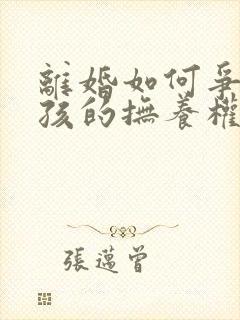 離婚如何爭
孩的撫養權
張邁曾